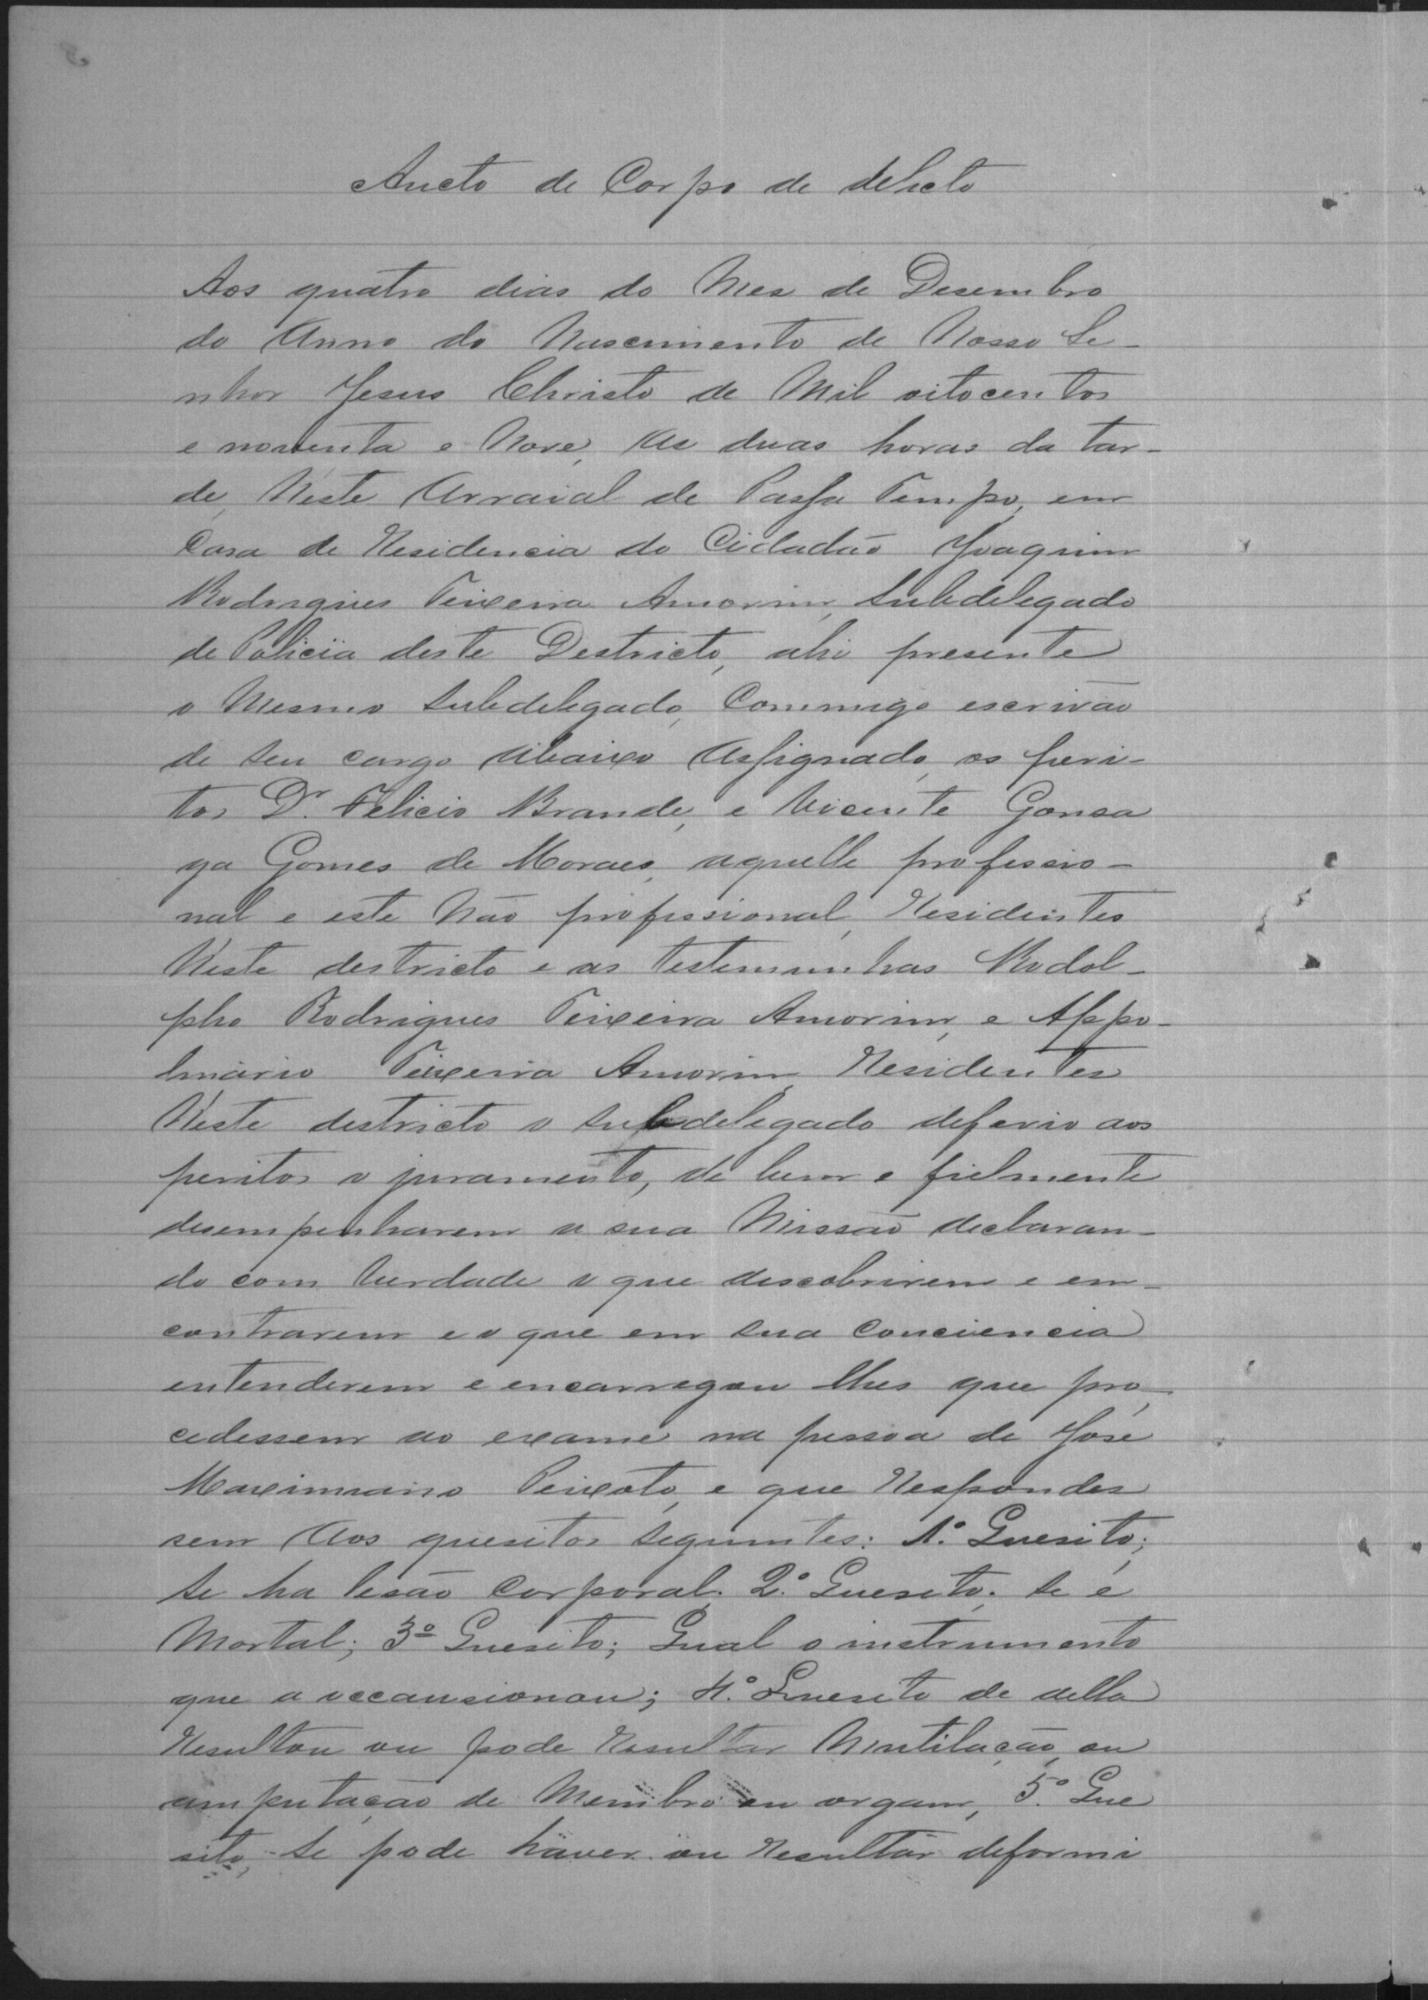 Aucto de Corpo de delicto
Aos quatro dias do Mez de Desembro
do Anno do Nascimento de Nosso Se-
nhor Jesus Christo de Mil oitocentos
e noventa e Nove, As duas horas da tar-
de, Neste Arraial de Passa Tempo, em
Casa de Residencia do Cidadão Joaquim
Rodrigues Teixeira Amorim, Subdelegado
de Policia deste Destricto, ahi presente
o Mesmo Subdelegado, Commigo escrivão
de seu cargo Abaixo Assignado, os peri-
tos Dr. Felicio Brande, e Vicente Gonsa
ga Gomes de Moraes, aquelle professio-
nal e este Não profissional, Residentes
Neste destricto e as testemunhas Rodol-
pho Rodrigues Teixeira Amorim, e Appo-
linario Teixeira Amorim, Residentes
Neste destricto o Subdelegado deferio aos
peritos o juramento, de bem e fielmente
desempenharem a sua Missão declaran-
do com Verdade o que descobrirem e en-
contrarem e o que em sua Conciencia
entenderem e encarregou lhes que pro-
cedessem ao exame na pessoa de José
Maximiano Peixoto, e que Respondes
sem Aos quesitos Seguintes: 1.º Quesito;
Se ha lesão Corporal. 2.º Quesito. Se é
Mortal; 3º Quesito; Qual o instrumento
que a occausionou; 4.º Quesito de della
Resultou ou pode Resultar Mutilação, ou
amputação de Membro ou orgam, 5.º Que
sito, Se pode haver ou Resultar deformi